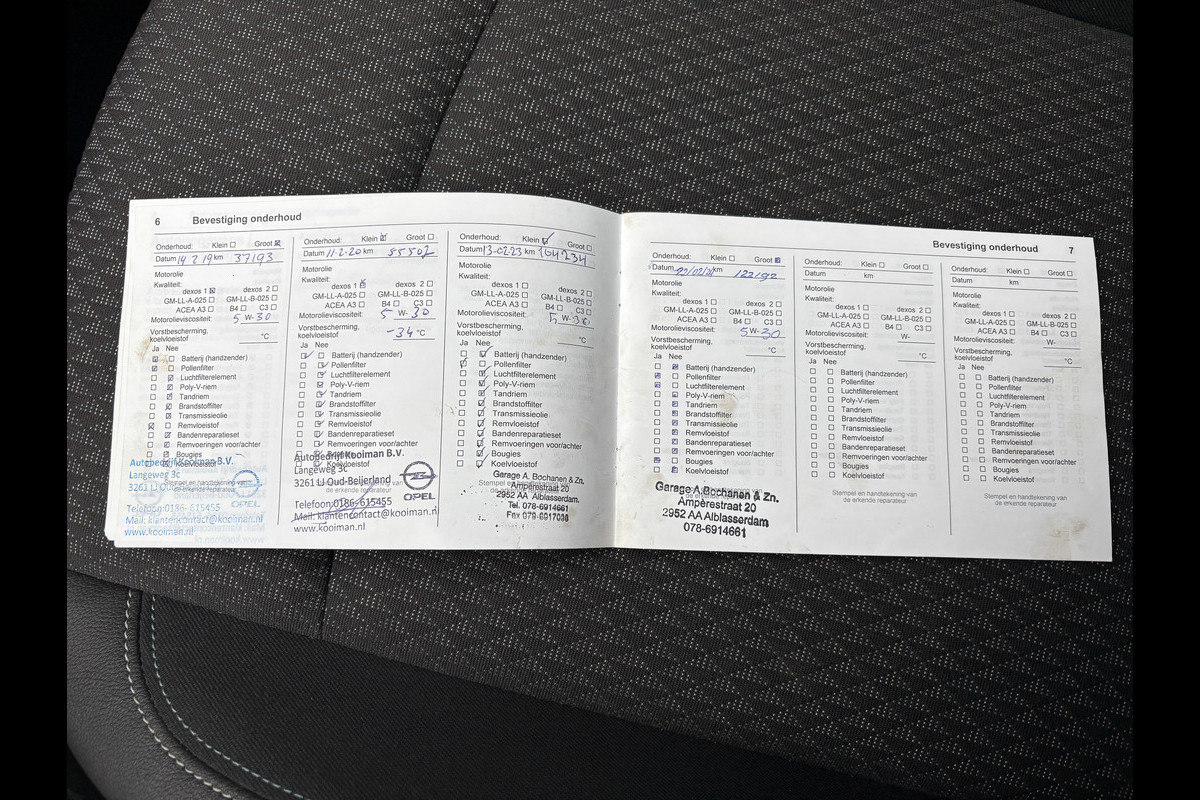 6 Bevestiging onderhoud
Onderhoud: Klein Groot
Datum 14 2 19 km 37193
Motorolie
Kwaliteit:
dexos 1 dexos 2
GM-LL-A-025 GM-LL-B-025
ACEA A3 B4 C3
Motorolieviscositeit: 5 W- 30
Vorstbescherming,
koelvloeistof °C
Ja Nee
Batterij (handzender)
Pollenfilter
Luchtfilterelement
Poly-V-riem
Tandriem
Brandstoffilter
Transmissieolie
Remvloeistof
Bandenreparatieset
Remvoeringen voor/achter
Bougies
Koelvloeistof
Autobedrijf Kooiman B.V.
Langeweg 3c
3261 LJ Oud-Beijerland
OPEL
Telefoon:0186-615455
Mail: klantencontact@kooiman.nl
www.kooiman.nl
Onderhoud: Klein Groot
Datum 11-2-20 km 55502
Motorolie
Kwaliteit:
dexos 1 dexos 2
GM-LL-A-025 GM-LL-B-025
ACEA A3 B4 C3
Motorolieviscositeit: 5 W- 30
Vorstbescherming,
koelvloeistof -34 °C
Ja Nee
Batterij (handzender)
Pollenfilter
Luchtfilterelement
Poly-V-riem
Tandriem
Brandstoffilter
Transmissieolie
Remvloeistof
Bandenreparatieset
Remvoeringen voor/achter
Koelvloeistof
Autobedrijf Kooiman B.V.
Langeweg 3c
3261 LJ Oud-Beijerland
de erkende reparateur
OPEL
Telefoon:0186-615455
Mail: klantencontact@kooiman.nl
www.kooiman.nl
Onderhoud: Klein Groot
Datum 13-02-23 km 104234
Motorolie
Kwaliteit:
dexos 1 dexos 2
GM-LL-A-025 GM-LL-B-025
ACEA A3 B4 C3
Motorolieviscositeit: 5 W- 30
Vorstbescherming,
koelvloeistof °C
Ja Nee
Batterij (handzender)
Pollenfilter
Luchtfilterelement
Poly-V-riem
Tandriem
Brandstoffilter
Transmissieolie
Remvloeistof
Bandenreparatieset
Remvoeringen voor/achter
Bougies
Koelvloeistof
Garage A. Bochanen & Zn.
Ampèrestraat 20
2952 AA Alblasserdam
Tel. 078-6914661
Fax 078-6917036
Bevestiging onderhoud 7
Onderhoud: Klein Groot
Datum km 122192
Motorolie
Kwaliteit:
dexos 1 dexos 2
GM-LL-A-025 GM-LL-B-025
ACEA A3 B4 C3
Motorolieviscositeit: 5 W- 30
Vorstbescherming,
koelvloeistof °C
Ja Nee
Batterij (handzender)
Pollenfilter
Luchtfilterelement
Poly-V-riem
Tandriem
Brandstoffilter
Transmissieolie
Remvloeistof
Bandenreparatieset
Remvoeringen voor/achter
Bougies
Koelvloeistof
Garage A. Bochanen & Zn.
Ampèrestraat 20
2952 AA Alblasserdam
078-6914661
Onderhoud: Klein Groot
Datum km
Motorolie
Kwaliteit:
dexos 1 dexos 2
GM-LL-A-025 GM-LL-B-025
ACEA A3 B4 C3
Motorolieviscositeit: W-
Vorstbescherming,
koelvloeistof °C
Ja Nee
Batterij (handzender)
Pollenfilter
Luchtfilterelement
Poly-V-riem
Tandriem
Brandstoffilter
Transmissieolie
Remvloeistof
Bandenreparatieset
Remvoeringen voor/achter
Bougies
Koelvloeistof
Stempel en handtekening van
de erkende reparateur
Onderhoud: Klein Groot
Datum km
Motorolie
Kwaliteit:
dexos 1 dexos 2
GM-LL-A-025 GM-LL-B-025
ACEA A3 B4 C3
Motorolieviscositeit: W-
Vorstbescherming,
koelvloeistof °C
Ja Nee
Batterij (handzender)
Pollenfilter
Luchtfilterelement
Poly-V-riem
Tandriem
Brandstoffilter
Transmissieolie
Remvloeistof
Bandenreparatieset
Remvoeringen voor/achter
Bougies
Koelvloeistof
Stempel en handtekening van
de erkende reparateur